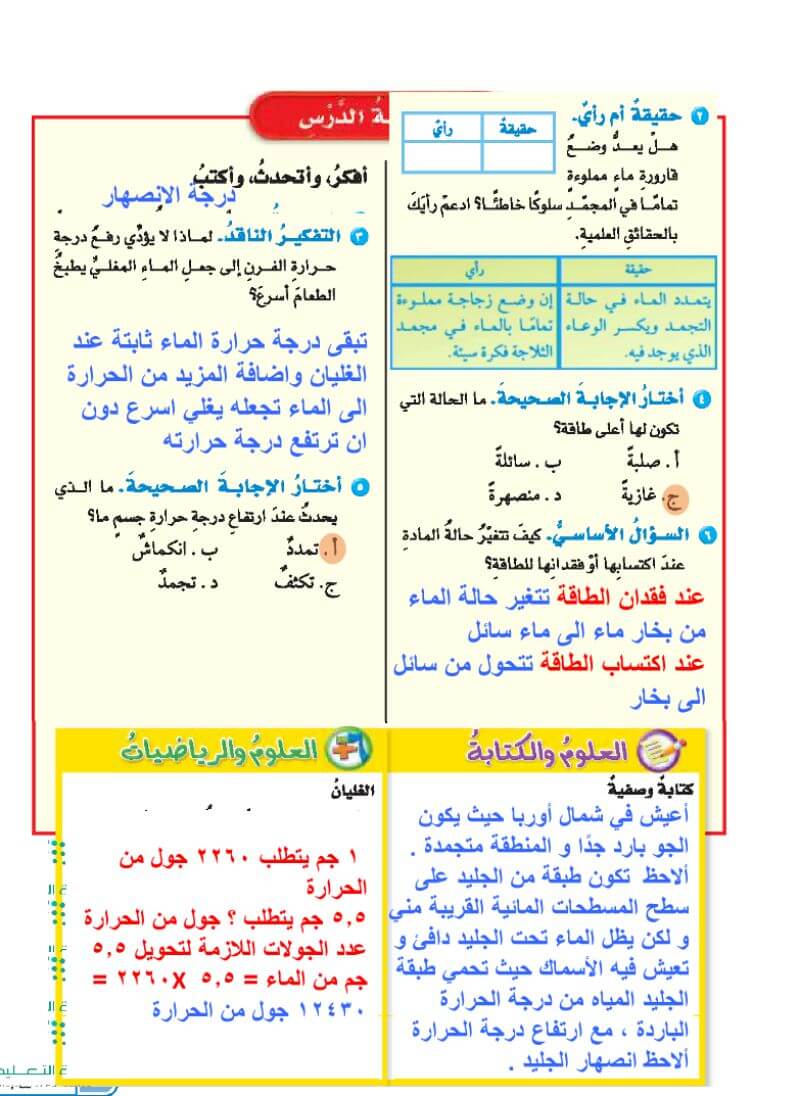 ةُ الدَّرْسِ
أفكرُ، وأتحدثُ، وأكتبُ
درجة الانصهار
٣ التفكيرُ الناقدُ. لماذا لا يؤدِّي رفعُ درجةِ
حرارةِ الفرنِ إلى جعلِ الماءِ المغليِّ يطبخُ
الطعامَ أسرعَ؟
تبقى درجة حرارة الماء ثابتة عند
الغليان واضافة المزيد من الحرارة
الى الماء تجعله يغلي اسرع دون
ان ترتفع درجة حرارته
٥ أختارُ الإجابةَ الصحيحةَ. ما الذي
يحدثُ عندَ ارتفاعِ درجةِ حرارةِ جسمٍ ما؟
أ. تمددٌ ب. انكماشٌ
ج. تكثفٌ د. تجمدٌ
٢ حقيقةٌ أم رأيٌ.
حقيقةٌ رأيٌ
هلْ يعدُّ وضعُ
قارورةِ ماءٍ مملوءةٍ
تمامًا في المجمّدِ سلوكًا خاطئًا؟ ادعمْ رأيَكَ
بالحقائقِ العلميةِ.
حقيقة رأي
يتمدد الماء في حالة إن وضع زجاجة مملوءة
التجمد ويكسر الوعاء تمامًا بالماء في مجمد
الذي يوجد فيه. الثلاجة فكرة سيئة.
٤ أختارُ الإجابةَ الصحيحةَ. ما الحالة التي
تكون لها أعلى طاقة؟
أ. صلبةٌ ب. سائلةٌ
ج. غازيةٌ د. منصهرةٌ
٦ السؤالُ الأساسيُّ. كيفَ تتغيَّرُ حالةُ المادةِ
عندَ اكتسابِها أوْ فقدانِها للطاقةِ؟
عند فقدان الطاقة تتغير حالة الماء
من بخار ماء الى ماء سائل
عند اكتساب الطاقة تتحول من سائل
الى بخار
العلومُ والكتابةُ
كتابةٌ وصفيةٌ
أعيش في شمال أوربا حيث يكون
الجو بارد جدًا و المنطقة متجمدة .
ألاحظ تكون طبقة من الجليد على
سطح المسطحات المائية القريبة مني
و لكن يظل الماء تحت الجليد دافئ و
تعيش فيه الأسماك حيث تحمي طبقة
الجليد المياه من درجة الحرارة
الباردة ، مع ارتفاع درجة الحرارة
ألاحظ انصهار الجليد .
العلومُ والرياضياتُ
الغليانُ
١ جم يتطلب ٢٢٦٠ جول من
الحرارة
٥,٥ جم يتطلب ؟ جول من الحرارة
عدد الجولات اللازمة لتحويل ٥,٥
جم من الماء = ٥,٥ X ٢٢٦٠ =
١٢٤٣٠ جول من الحرارة